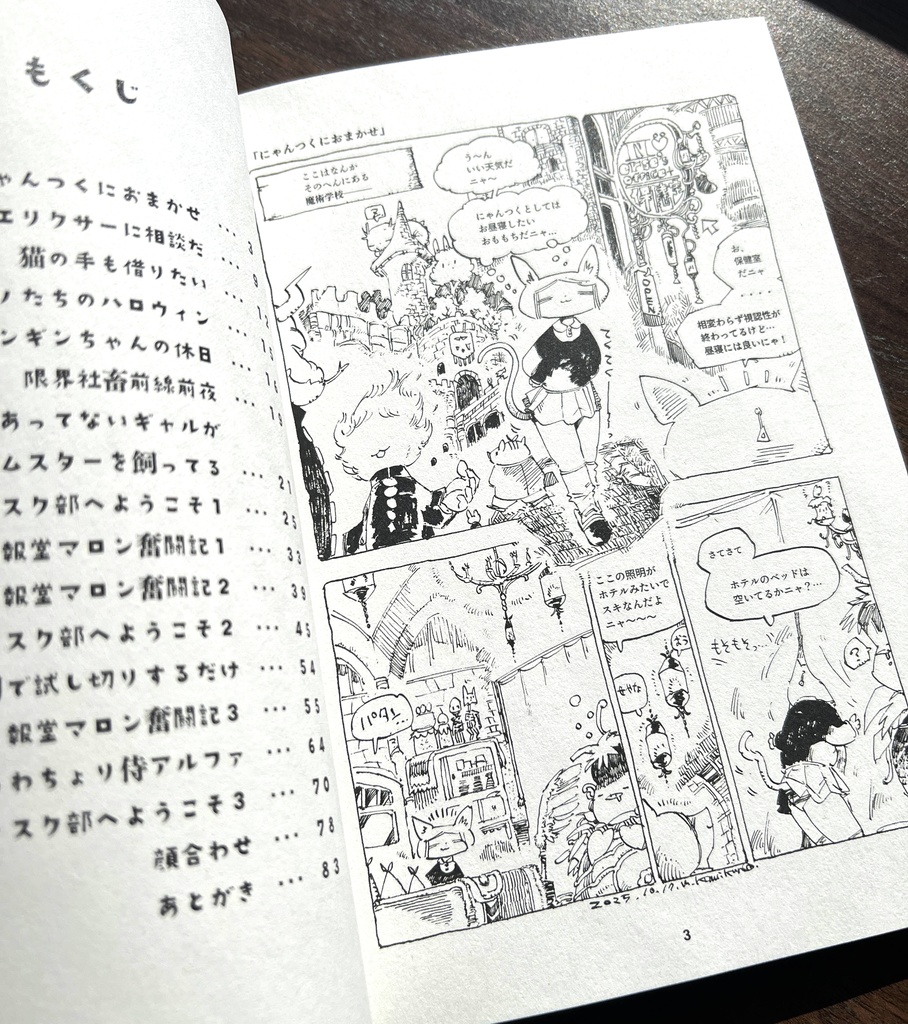 もくじ
ゃんつくにおまかせ … 3
エリクサーに相談だ … 9
猫の手も借りたい … 14
たちのハロウィン … 15
ンギンちゃんの休日 … 16
限界社畜前線前夜 … 19
あってないギャルが
ムスターを飼ってる … 21
スク部へようこそ1 … 25
報堂マロン奮闘記1 … 33
報堂マロン奮闘記2 … 39
スク部へようこそ2 … 45
で試し切りするだけ … 54
報堂マロン奮闘記3 … 55
わちょり侍アルファ … 64
スク部へようこそ3 … 70
顔合わせ … 78
あとがき … 83
「にゃんつくにおまかせ」
ここはなんか
そのへんにある
魔術学校――
う〜ん
いい天気だ
ニャ〜
にゃんつくとしては
お昼寝したい
おももちだニャ…
?
お、
保健室
だニャ
・・・・
相変わらず視認性が
終わってるけど…
昼寝には良いにゃ!
パタン…
ここの照明が
ホテルみたいで
スキなんだよ
ニャ〜〜〜
せやな
さてさて
ホテルのベッドは
空いてるかニャ?…
もそもそっ…
?
2025.10.17.
3